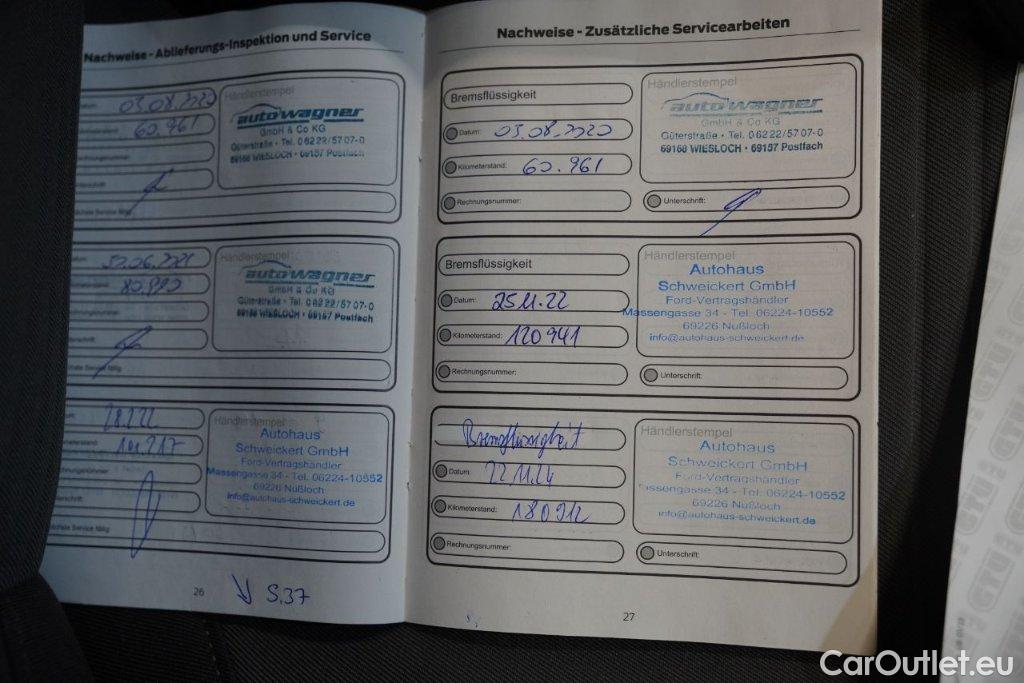 Nachweise - Ablieferungs-Inspektion und Service
03.08.2020
60.961
Händlerstempel
auto wagner
GmbH & Co KG
Güterstraße • Tel. 0 62 22/57 07-0
69168 WIESLOCH • 69157 Postfach
Händlerstempel
auto wagner
GmbH & Co KG
Güterstraße • Tel. 0 62 22/57 07-0
69168 WIESLOCH • 69157 Postfach
Händlerstempel
Autohaus
Schweickert GmbH
Ford-Vertragshändler
Massengasse 34 - Tel. 06224-10552
69226 Nußloch
info@autohaus-schweickert.de
26
S.37
Nachweise - Zusätzliche Servicearbeiten
Bremsflüssigkeit
Datum: 03.08.2020
Kilometerstand: 60.961
Rechnungsnummer:
Händlerstempel
auto wagner
GmbH & Co KG
Güterstraße • Tel. 0 62 22/57 07-0
69168 WIESLOCH • 69157 Postfach
Unterschrift:
Bremsflüssigkeit
Datum: 25.11.22
Kilometerstand: 120941
Rechnungsnummer:
Händlerstempel
Autohaus
Schweickert GmbH
Ford-Vertragshändler
Massengasse 34 - Tel. 06224-10552
69226 Nußloch
info@autohaus-schweickert.de
Unterschrift:
Bremsflüssigkeit
Datum: 22.11.24
Kilometerstand: 180912
Rechnungsnummer:
Händlerstempel
Autohaus
Schweickert GmbH
Ford-Vertragshändler
Massengasse 34 - Tel. 06224-10552
69226 Nußloch
info@autohaus-schweickert.de
Unterschrift:
27
CarOutlet.eu